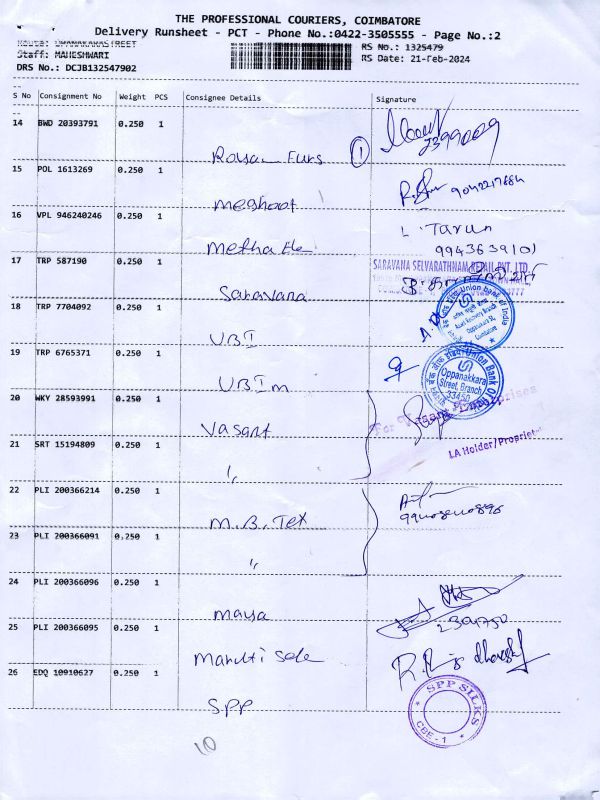 THE PROFESSIONAL COURIERS, COIMBATORE
Delivery Runsheet - PCT - Phone No.:0422-3505555 - Page No.:2
RS No.: 1325479
Staff: MAHESHWARI RS Date: 21-Feb-2024
DRS No.: DCJB132547902
S No Consignment No Weight PCS Consignee Details Signature
14 BWD 20393791 0.250 1
15 POL 1613269 0.250 1
meghoot
16 VPL 946240246 0.250 1
L. Tarun
9943639101
17 TRP 587190 0.250 1
SARAVANA SELVARATHNAM RETAIL PVT. LTD.
Saravana
18 TRP 7704092 0.250 1
Union bank of India
UBI
19 TRP 6765371 0.250 1
Union Bank Of
Oppanakkara
Street, Branch
UBI m
20 WKY 28593991 0.250 1
Vasant
21 SRT 15194809 0.250 1
LA Holder/Propriet
"
22 PLI 200366214 0.250 1
M.B. Tex
23 PLI 200366091 0.250 1
"
24 PLI 200366096 0.250 1
maya
25 PLI 200366095 0.250 1
Maruti Sale
26 EDQ 10910627 0.250 1
SPP
SPP SILKS
CBE - 1
10